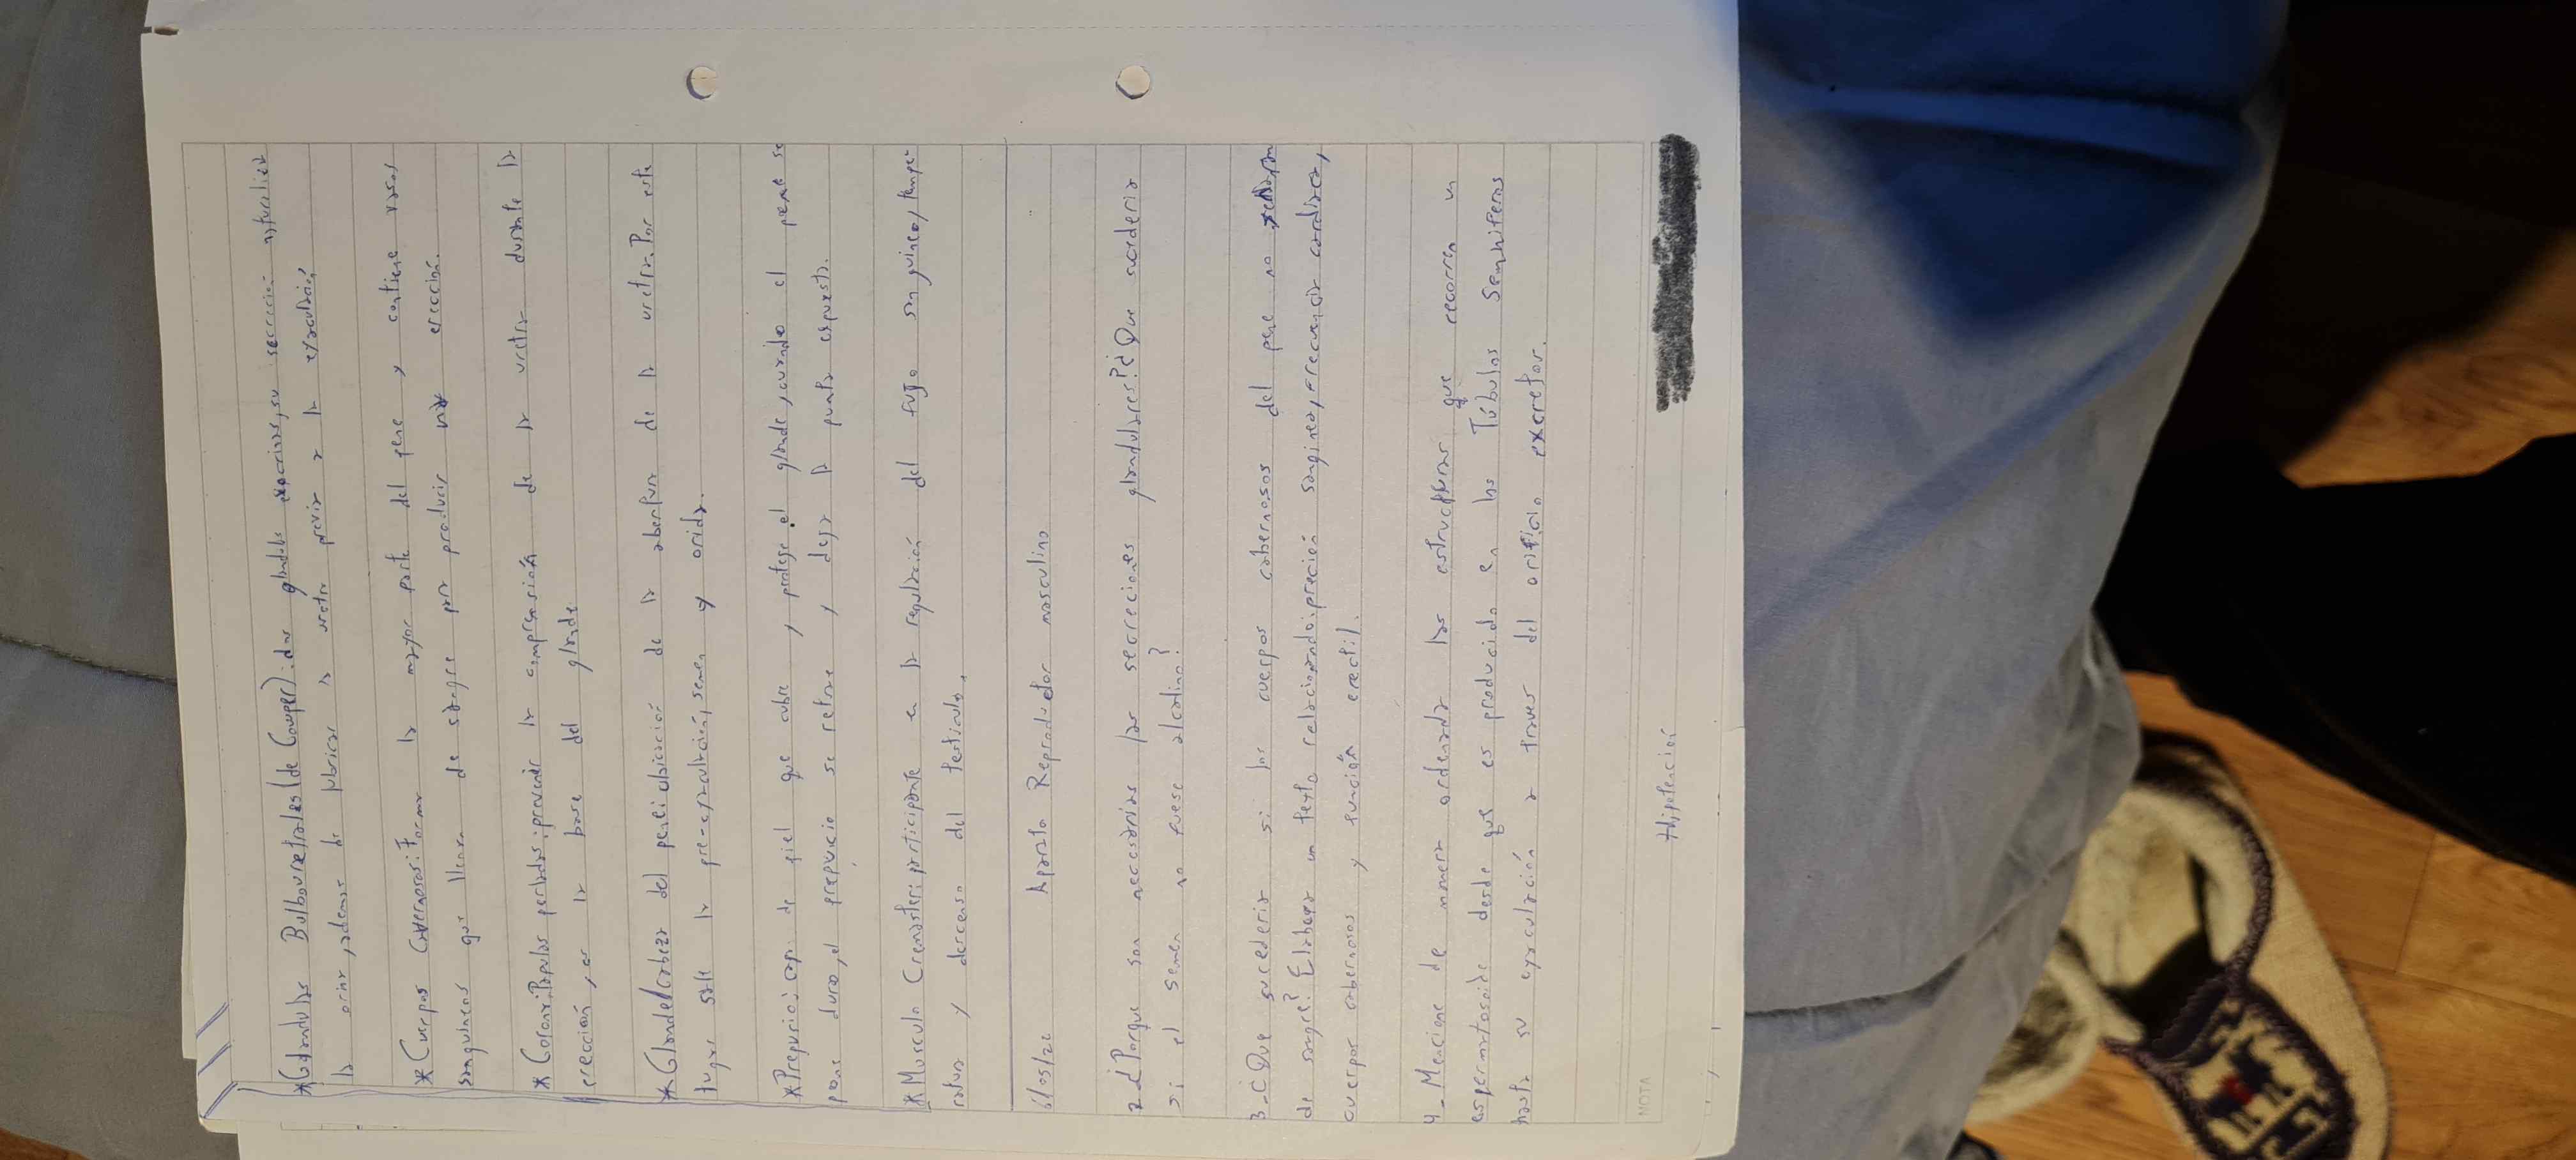 *Glandulas Bulbouretrales(de Cowper): dos glandulas exocrinas, su secreción
la orina, ademas de lubricar la uretra previa a la eyaculación
*Cuerpos Cavernosos: Formar la mayor parte del pene y contiene vasos
sanguineos que llenan de sangre para producir una erección.
*Corona: Papulas perladas: prevenir la compresión de la uretra durante la
erección, es la base del glande.
*Glande/cabeza del pene: ubicación de la abertura de la uretra. Por este
lugar sale la pre-eyaculación, semen y orida.
*Prepucio: capa de piel que cubre y protege el glande, cuando el pene se
pone duro, el prepucio se retrae y deja la punta expuesta.
*Musculo Cremaster: participante en la regulación del flujo sanguineo, tempe-
ratura y descenso del testiculo.
6/05/22 Aparato Reproductor masculino
2_¿Porque son necesarias las secreciones glandulares? ¿Que sucederia
si el semen no fuese alcalino?
3_¿Que sucederia si los cuerpos cabernosos del pene no
de sangre? Elabora un texto relacionando: preción sangínea, frecuencia cardiaca,
cuerpos cabernosos y función erectil.
4_Mencione de manera ordenada las estructuras que recorren un
espermatozoide desde que es producido en los Túbulos Seminiferos
hasta su eyaculación a traves del orificio excretor.
NOTA